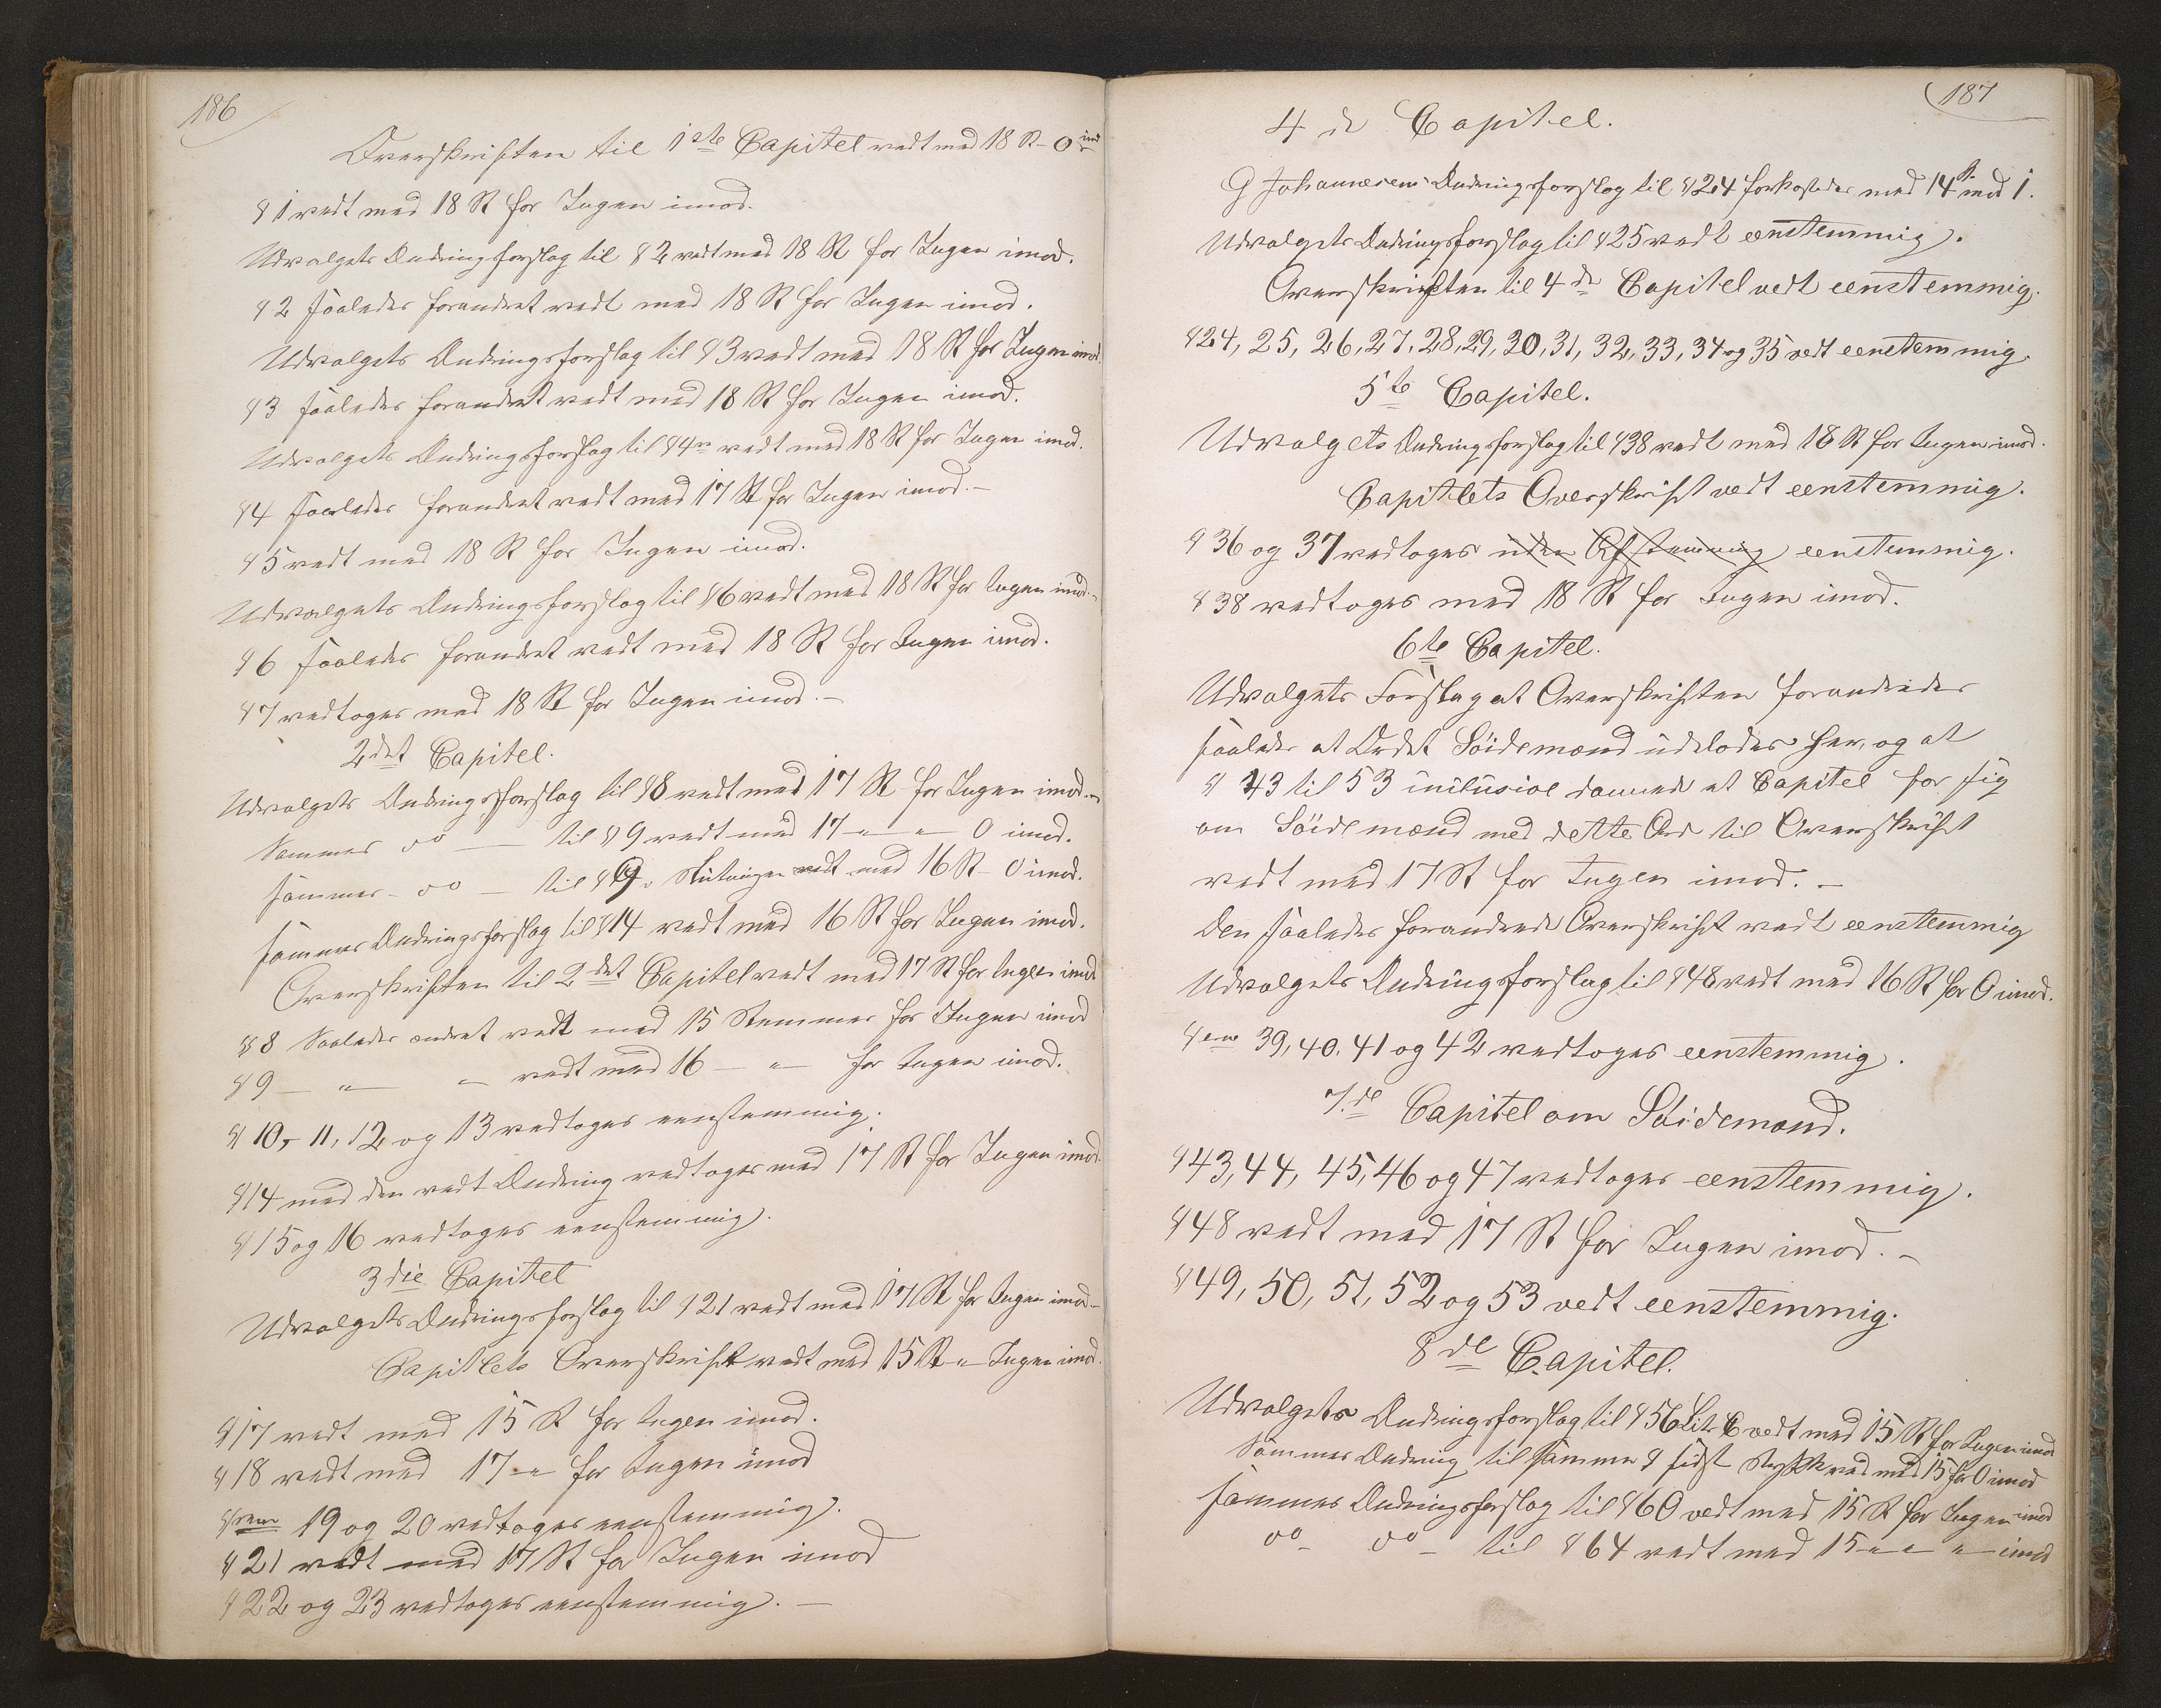 186
Overskriften til 1ste Capitel vedt med 18 St - 0 imd
§ 1 vedt med 18 St for Ingen imod.
Udvalgets Ændringsforslag til § 2 vedt med 18 St for Ingen imod.
§ 2 saaledes forandret vedt med 18 St for Ingen imod.
Udvalgets Ændringsforslag til § 3 vedt med 18 St for Ingen imod
§ 3 saaledes forandret vedt med 18 St for Ingen imod.
Udvalgets Ændringsforslag til § 4 vedt med 18 St for Ingen imod.
§ 4 saaledes forandret vedt med 17 St for Ingen imod. -
§ 5 vedt med 18 St for Ingen imod.
Udvalgets Ændringsforslag til § 6 vedt med 18 St for Ingen imod. -
§ 6 saaledes forandret vedt med 18 St for Ingen imod.
§ 7 vedtoges med 18 St for Ingen imod. -
2det Capitel.
Udvalgets Ændringsforslag til § 8 vedt med 17 St for Ingen imod. -
Sammes do — til § 9 vedt med 17 - " - " - 0 imod.
sammes - do — til § 9. Slutningen vedt med 16 St - 0 imod.
sammes Ændringsforslag til § 14 vedt med 16 St for Ingen imod.
Overskriften til 2det Capitel vedt med 17 St for Ingen imod
§ 8 Saaledes ændret vedt med 15 Stemmer for Ingen imod
§ 9 — " — " — vedt med 16 — " — for Ingen imod.
§ 10, 11, 12 og 13 vedtoges eenstemmig.
§ 14 med den vedt Ændring vedtoges med 17 St for Ingen imod.
§ 15 og 16 vedtoges eenstemmig.
3die Capitel
Udvalgets Ændringsforslag til § 21 vedt med 17 St for Ingen imod -
Capitlets Overskrift vedt med 15 St - " - Ingen imod.
§ 17 vedt med 15 St for Ingen imod.
§ 18 vedt med 17 - " for Ingen imod
§rene 19 og 20 vedtoges eenstemmig.
§ 21 vedt med 17 St for Ingen imod
§ 22 og 23 vedtoges eenstemmig. —
187
4de Capitel.
G Johannesens Ændringsforslag til § 24 forkastedes med 14 St imod 1.
Udvalgets Ændringsforslag til § 25 vedt eenstemmig.
Overskriften til 4de Capitel vedt eenstemmig.
§ 24, 25, 26, 27, 28, 29, 30, 31, 32, 33, 34 og 35 vedt eenstemmig.
5te Capitel.
Udvalgets Ændringsforslag til § 38 vedt med 18 St for Ingen imod.
Capitlets Overskrift vedt eenstemmig.
§ 36 og 37 vedtoges uden Afstemning eenstemmig.
§ 38 vedtoges med 18 St for Ingen imod.
6te Capitel.
Udvalgets Forslag at Overskriften forandredes
saaledes at Ordet Söidemænd udelodes her, og at
§ 43 til 53 inclusive dannede et Capitel for sig
om Söidemænd med dette Ord til Overskrift
vedt med 17 St for Ingen imod. -
Den saaledes forandrede Overskrift vedt eenstemmig
Udvalgets Ændringsforslag til § 48 vedt med 16 St for 0 imod.
§ene 39, 40, 41 og 42 vedtoges eenstemmig.
7de Capitel om Söidemænd.
§ 43, 44, 45, 46 og 47 vedtoges eenstemmig.
§ 48 vedt med 17 St for Ingen imod. -
§ 49, 50, 51, 52 og 53 vedt eenstemmig.
8de Capitel.
Udvalgets Ændringsforslag til § 56 Litr C vedt med 15 St for Ingen imod
Sammes Ændring til samme § sidst Stykke ved med 15 for 0 imod
sammes Ændringsforslag til § 60 vedt med 15 St for Ingen imod
do - do - til § 64 vedt med 15 - " - " - " - imod